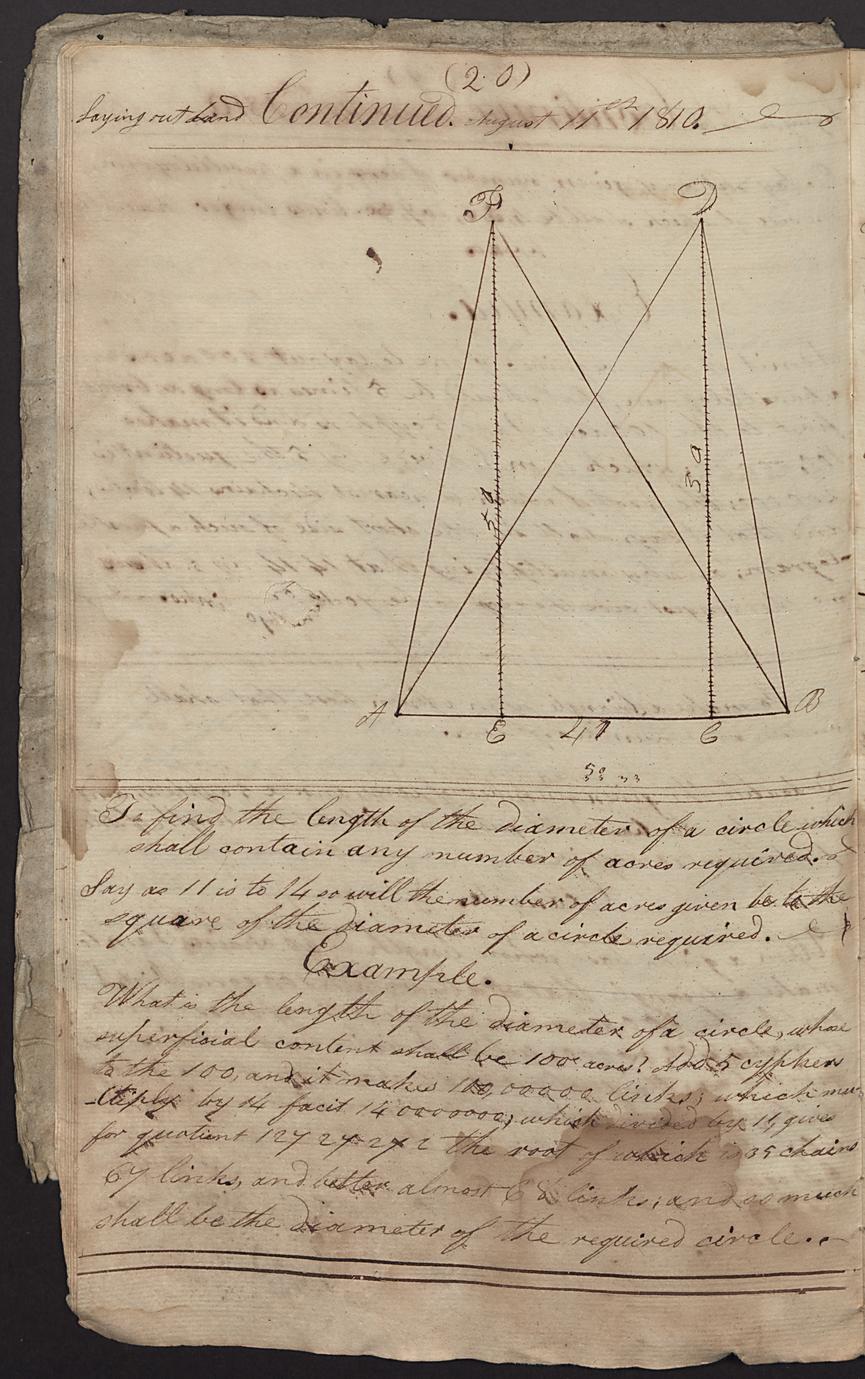 (20)
Laying out Land Continued. August 11th 1810.
F D
59 59
A E 47 C B
To find the length of the diameter of a circle which
shall contain any number of acres required.
Say as 11 is to 14 so will the number of acres given be to the
square of the diameter of a circle required.
Example.
What is the length of the diameter of a circle, whose
superficial content shall be 100 acres? Add 5 cyphers
to the 100, and it makes 100,00000 links; which mul-
-tiply by 14 facit 140000000; which divided by 11, give
for quotient 12727272 the root of which is 35 chains
67 links, and better almost 68 links; and so much
shall be the diameter of the required circle.